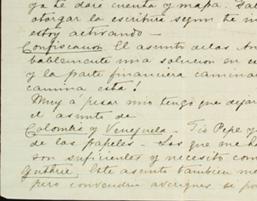 ya te daré cuenta y mapa.
otorgar la escritura segun te in
estoy activando —
Confiscacion El asunto de las
bablemente una solucion en
y la parte financiera camina
camina esta!
Muy a pesar mio tengo que dejar
el asunto de
Colombia y Venezuela. Tio Pepe y
de los papeles — Los que me h
son suficientes y necesito com
Guthrie. Este asunto tambien me
pero convendria averigues se po